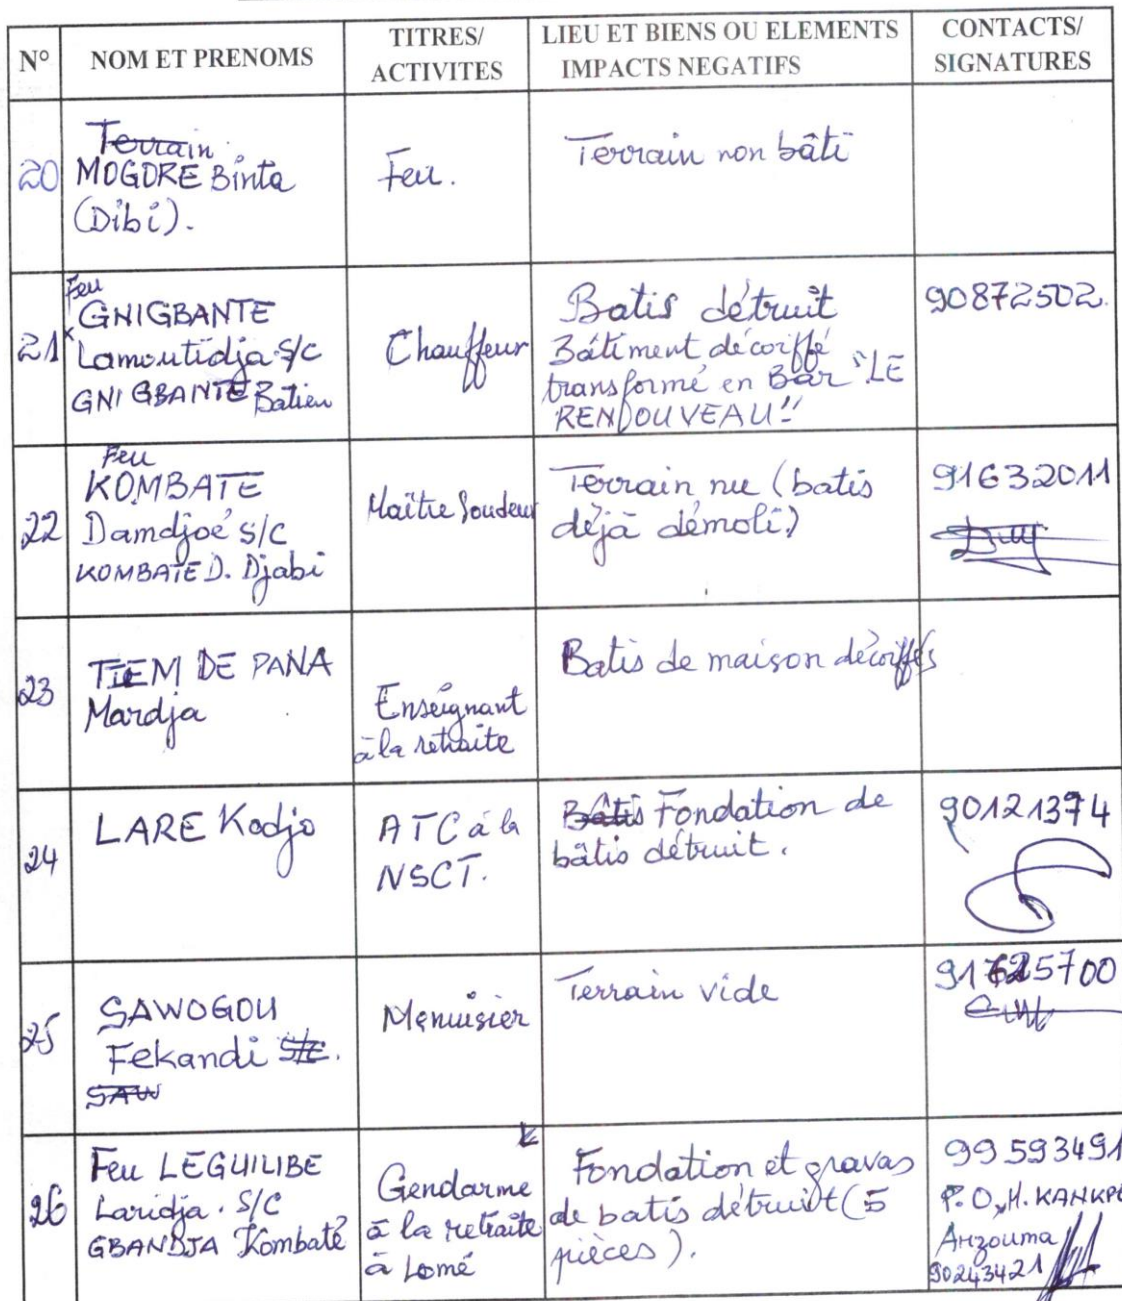 N° NOM ET PRENOMS TITRES/ ACTIVITES LIEU ET BIENS OU ELEMENTS IMPACTS NEGATIFS CONTACTS/ SIGNATURES
20
Terrain
MOGORE Binta
(Dibi).
Feu.
Terrain non bâti
21
Feu
GNIGBANTE
Lamoutidja S/C
GNIGBANTE Batien
Chauffeur
Batis détruit
Bâtiment décoiffé
transformé en Bar "LE
RENOUVEAU"
90872502.
22
Feu
KOMBATE
Damdjoé S/C
KOMBATE D. Djabi
Maître Soudeur
Terrain nu (batis
déjà démoli)
91632011
23
TIEM DE PANA
Mardja
Enseignant
à la retraite
Batis de maison décoiffés
24
LARE Kodjo
ATC à la
NSCT.
Bâtis Fondation de
bâtis détruit.
90121374
25
SAWOGOU
Fekandi S/C.
SAW
Menuisier
Terrain vide
91625700
26
Feu LEGUILIBE
Laridja. S/C
GBANDJA Kombaté
Gendarme
à la retraite
à Lomé
Fondation et gravas
de batis détruit (5
pièces).
99593491
P.O, H. KANKPE
Anzouma
90243421